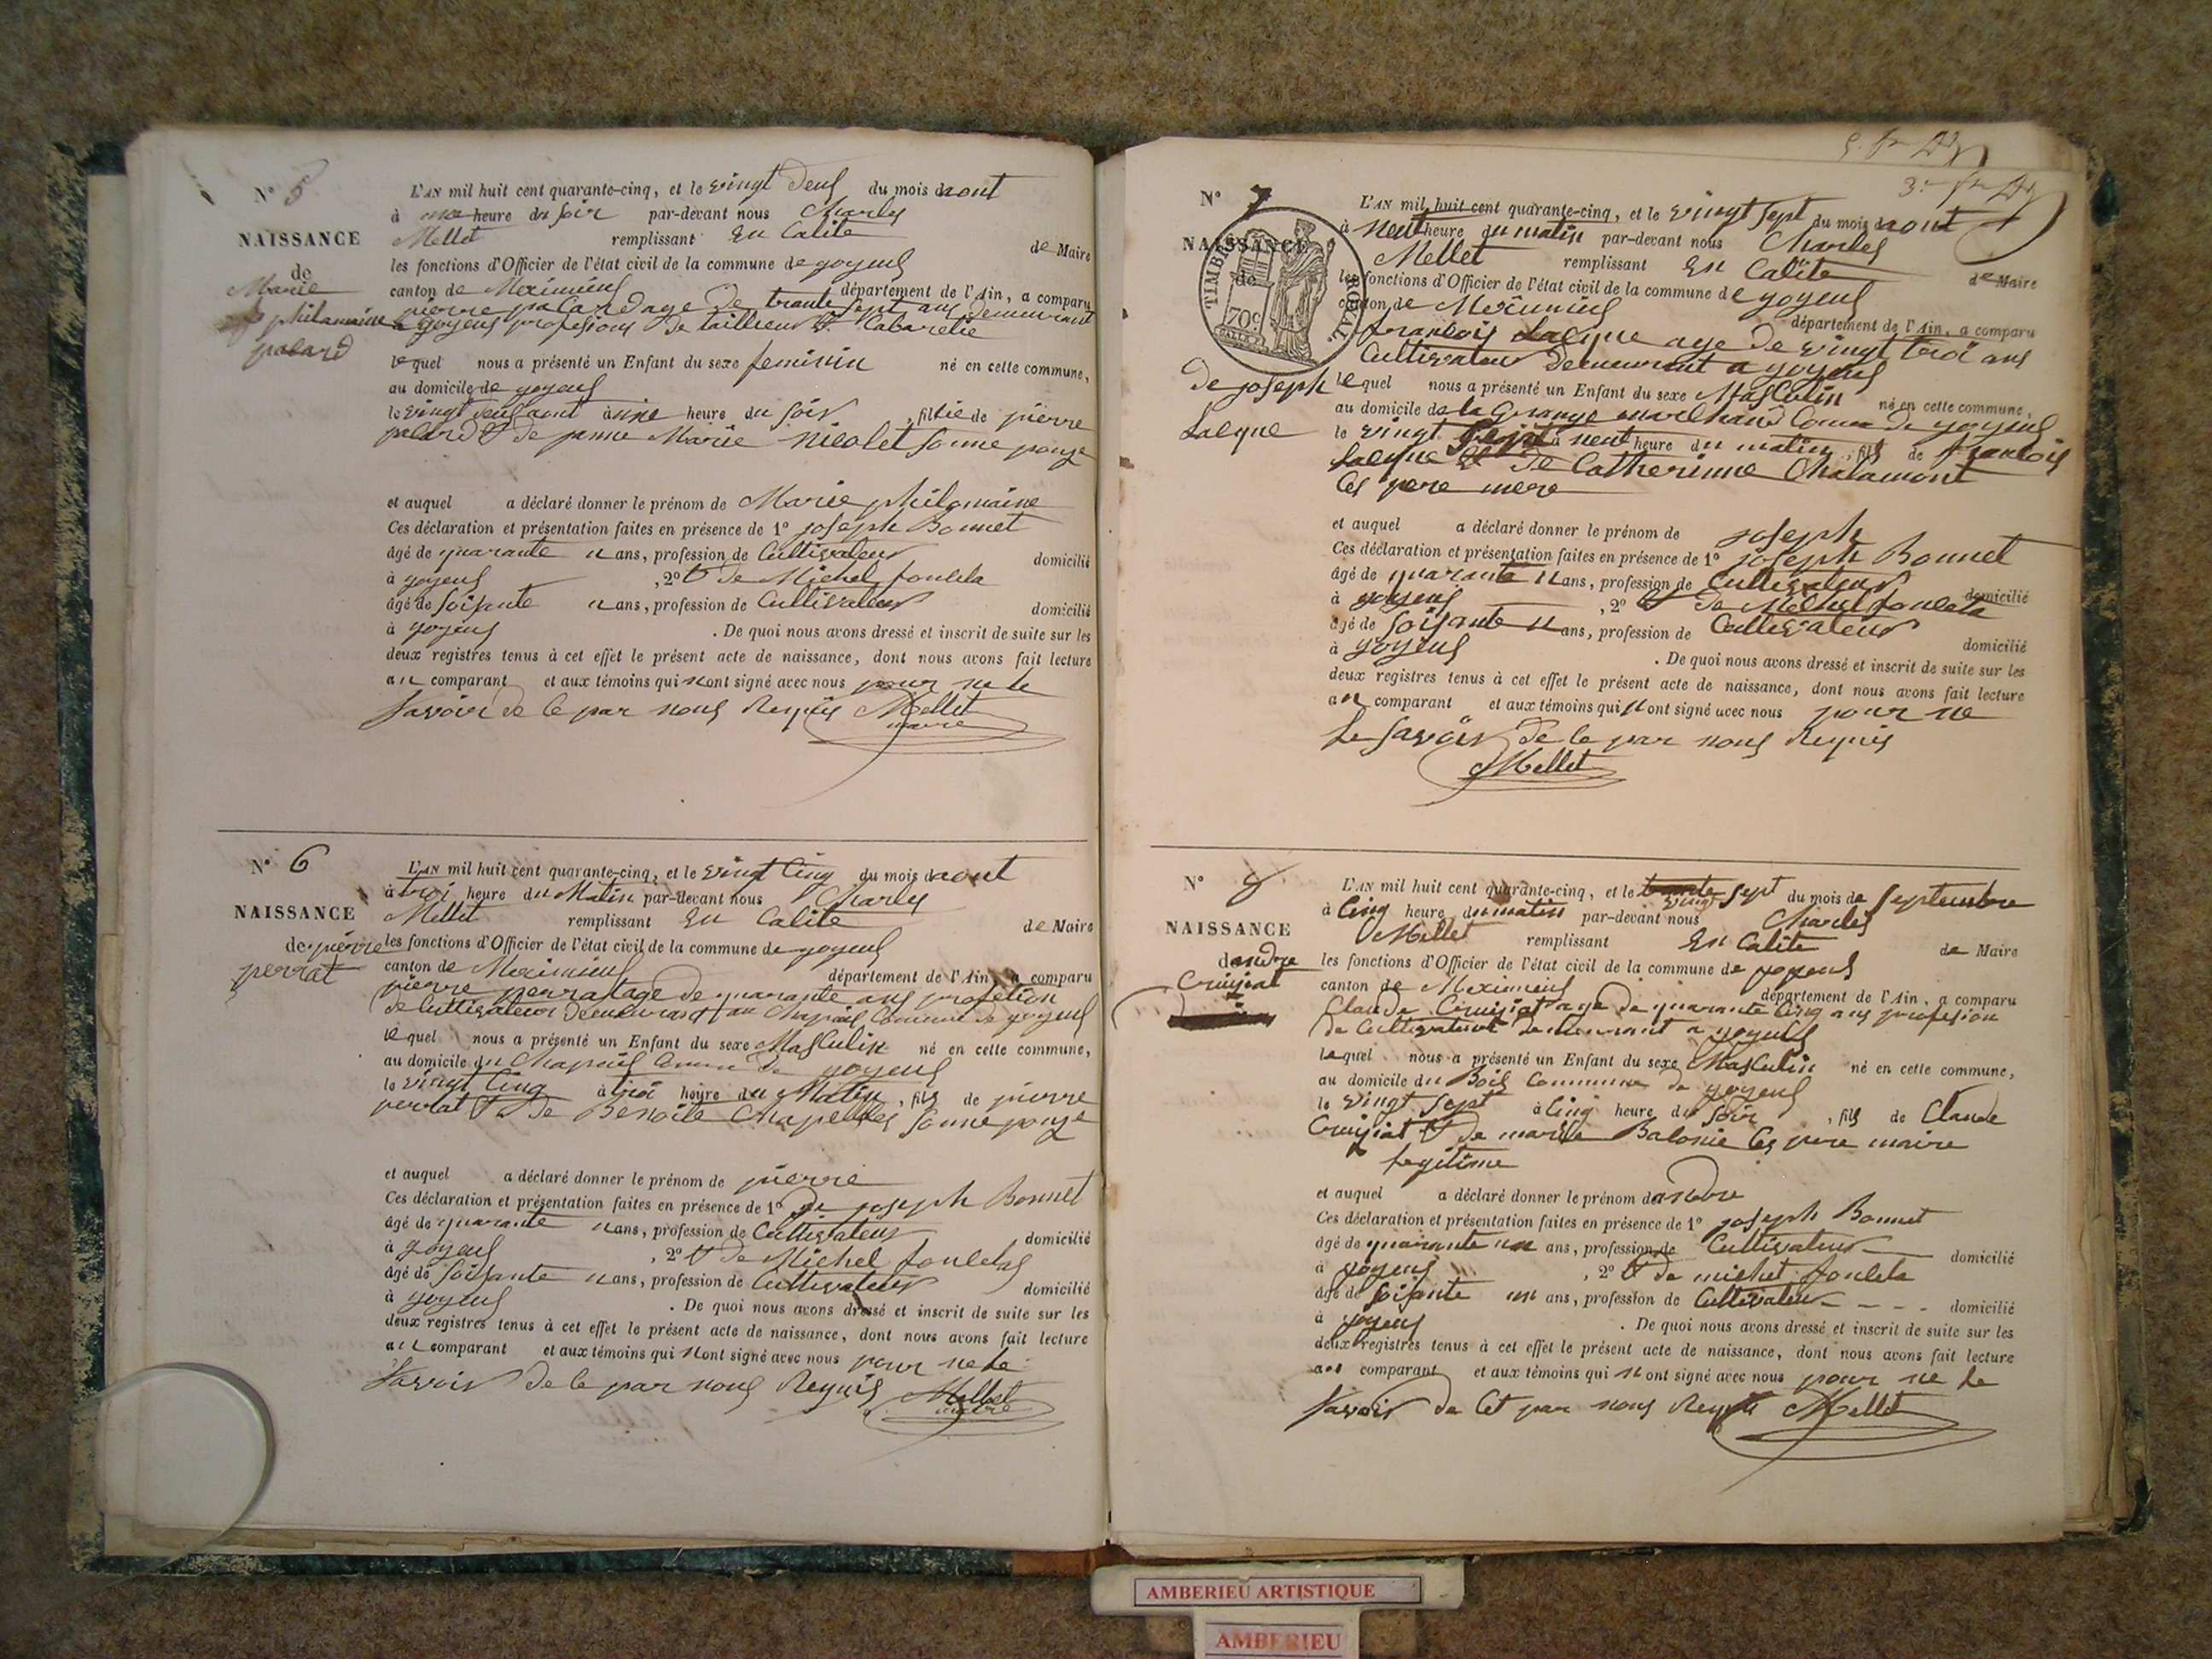 N° 5
NAISSANCE
de
Marie
philamaine
palard
L'AN mil huit cent quarante-cinq, et le vingt deus du mois daout
à une heure du soir par-devant nous Charles
Mellet remplissant En Calite de Maire
les fonctions d'Officier de l'état civil de la commune de joyeus
canton de Meximieus département de l'Ain, a comparu
pierre palard age de trante sept ans demeurant
a joyeus profesions de tailleur & Cabaretié
lequel nous a présenté un Enfant du sexe feminin né en cette commune,
au domicile de joyeus
le vingt deus aout à une heure du soir, fille de pierre
palard & de janne Marie nicolet sonne pouze
et auquel a déclaré donner le prénom de Marie philamaine
Ces déclaration et présentation faites en présence de 1° joseph Bonnet
âgé de quarante un ans, profession de Cultivateur domicilié
à joyeus, 2° & de Michel foulela
âgé de soisante un ans, profession de Cultivateur domicilié
à joyeus. De quoi nous avons dressé et inscrit de suite sur les
deux registres tenus à cet effet le présent acte de naissance, dont nous avons fait lecture
au comparant et aux témoins qui nont signé avec nous pour ne le
savoir de ce par nous Requis Mellet
maire
N° 6
NAISSANCE
de pierre
perrat
L'AN mil huit cent quarante-cinq, et le vingt Cinq du mois daout
à troi heure du Matin par-devant nous Charles
Mellet remplissant En Calite de Maire
les fonctions d'Officier de l'état civil de la commune de joyeus
canton de Meximieus département de l'Ain, a comparu
pierre perrat age de quarante ans profetion
de Cultivateur demeurant au Chapuis Comune de joyeus
lequel nous a présenté un Enfant du sexe Masculin né en cette commune,
au domicile du Chapuis Comune de joyeus
le vingt Cinq à troi heure du Matin, fils de pierre
perrat & de Benoite Chapelles sonne pouze
et auquel a déclaré donner le prénom de pierre
Ces déclaration et présentation faites en présence de 1° de joseph Bonnet
âgé de quarante un ans, profession de Cultivateur domicilié
à joyeus, 2° & de Michel foulela
âgé de soisante un ans, profession de Cultivateur domicilié
à joyeus. De quoi nous avons dressé et inscrit de suite sur les
deux registres tenus à cet effet le présent acte de naissance, dont nous avons fait lecture
au comparant et aux témoins qui nont signé avec nous pour ne le
savoir de ce par nous Requis Mellet
maire
N° 7
NAISSANCE
de
TIMBRE ROYAL.
70c
de joseph
L'AN mil huit cent quarante-cinq, et le vingt sept du mois daout
à neuf heure du matin par-devant nous Charles
Mellet remplissant En Calite de Maire
les fonctions d'Officier de l'état civil de la commune de joyeus
canton de Meximieus département de l'Ain, a comparu
francois age de vingt troi ans
Cultivateur demeurant a joyeus
lequel nous a présenté un Enfant du sexe Masculin né en cette commune,
au domicile de la Grange marchand Comune de joyeus
le vingt sept à neuf heure du matin, fils de francois
& de Catherinne Chalamont
Ces pere mere
et auquel a déclaré donner le prénom de joseph
Ces déclaration et présentation faites en présence de 1° joseph Bonnet
âgé de quarante un ans, profession de Cultivateur domicilié
à joyeus, 2° & de Michel foulela
âgé de soisante un ans, profession de Cultivateur domicilié
à joyeus. De quoi nous avons dressé et inscrit de suite sur les
deux registres tenus à cet effet le présent acte de naissance, dont nous avons fait lecture
au comparant et aux témoins qui nont signé avec nous pour ne
le savoir de ce par nous Requis
Mellet
N° 8
NAISSANCE
dandre
Cruiziat
L'AN mil huit cent quarante-cinq, et le vingt sept du mois de septembre
à Cinq heure du matin par-devant nous Charles
Mellet remplissant En Calite de Maire
les fonctions d'Officier de l'état civil de la commune de joyeus
canton de Meximieus département de l'Ain, a comparu
Claude Cruiziat age de quarante Cinq ans profesion
de Cultivateur demeurant a joyeus
lequel nous a présenté un Enfant du sexe Masculin né en cette commune,
au domicile du Bois Commune de joyeus
le vingt sept à Cinq heure du soir, fils de Claude
Cruiziat & de marie Balonie Ces pere maire
legitime
et auquel a déclaré donner le prénom dandre
Ces déclaration et présentation faites en présence de 1° joseph Bonnet
âgé de quarante un ans, profession de Cultivateur domicilié
à joyeus, 2° & de michel foulela
âgé de soisante un ans, profession de Cultivateur domicilié
à joyeus. De quoi nous avons dressé et inscrit de suite sur les
deux registres tenus à cet effet le présent acte de naissance, dont nous avons fait lecture
au comparant et aux témoins qui nont signé avec nous pour ne le
savoir de Cet par nous Requis Mellet
AMBERIEU ARTISTIQUE
AMBERIEU